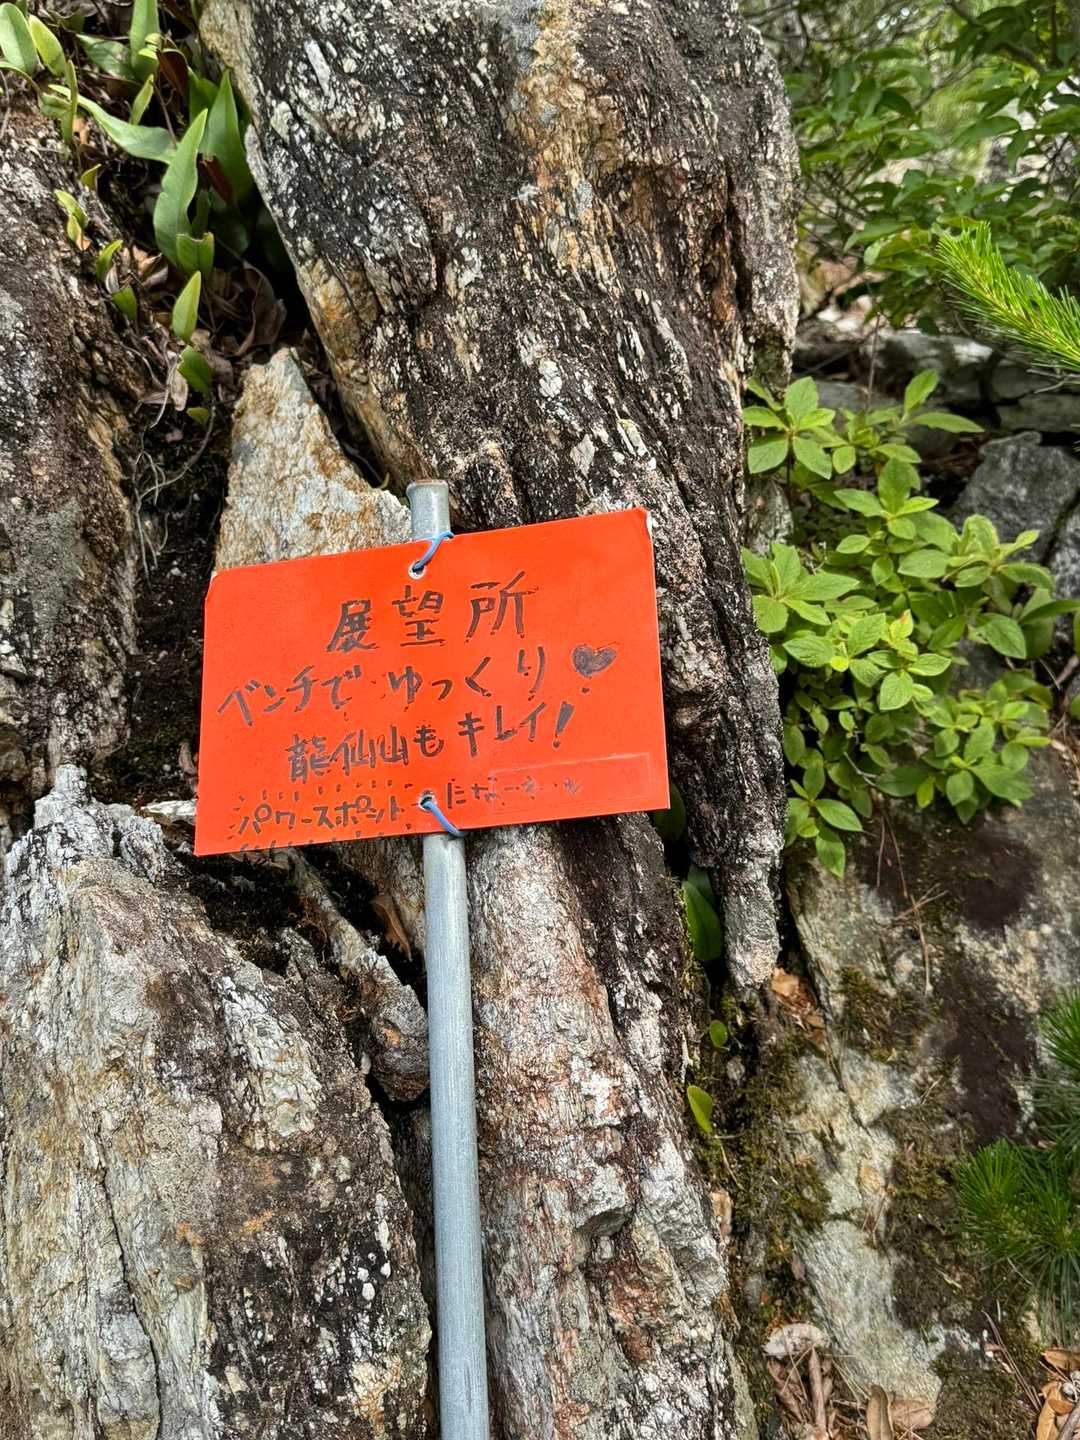 展望所
ベンチで ゆっくり♥
龍仙山も キレイ!
パワースポット